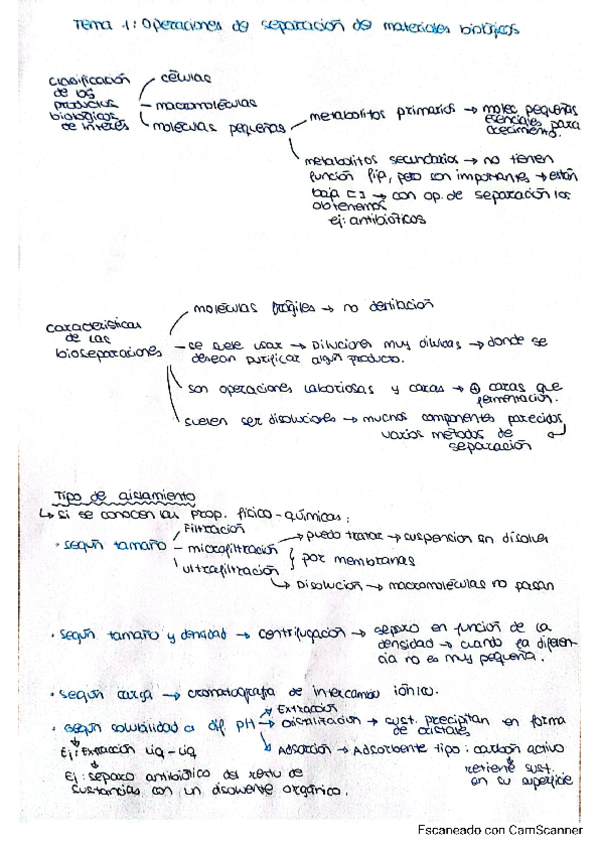 Tema 1: Operaciones de separación de materiales biológicos
clasificación de los productos biológicos de interés
células
macromoléculas
moléculas pequeñas
metabolitos primarios → molec pequeñas esenciales para crecimiento.
metabolitos secundarios → no tienen
función fip, pero son importantes → están
baja [] → con op. de separación los
obtenemos
ej: antibióticos
características de las bioseparaciones
moléculas frágiles → no destilación
se suele usar → Diluciones muy diluidas → donde se
desean purificar algún producto.
son operaciones laboriosas y caras → ⊕ caras que
fermentación.
suelen ser disoluciones → muchos componentes parecidos
varios métodos de
separación
Tipo de aislamiento
↳ si se conocen las prop. físico-químicas:
· según tamaño
Filtración
microfiltración
ultrafiltración
} por membranas
→ puedo tratar → suspension sin disolver
↳ Disolución → macromoléculas no pasan
· según tamaño y densidad → centrifugación → separo en función de la
densidad → cuando la diferen-
cia no es muy pequeña.
· según carga → cromatografía de intercambio iónico.
· según solubilidad a dif. pH
→ Extracción
→ cristalización → sust. precipitan en forma
de cristales
→ Adsorción → Adsorbente tipo: carbón activo
retiene sust.
en su superficie
Ej: Extracción Liq - Liq
Ej: separo antibiótico del resto de
sustancias con un disolvente orgánico.
Escaneado con CamScanner